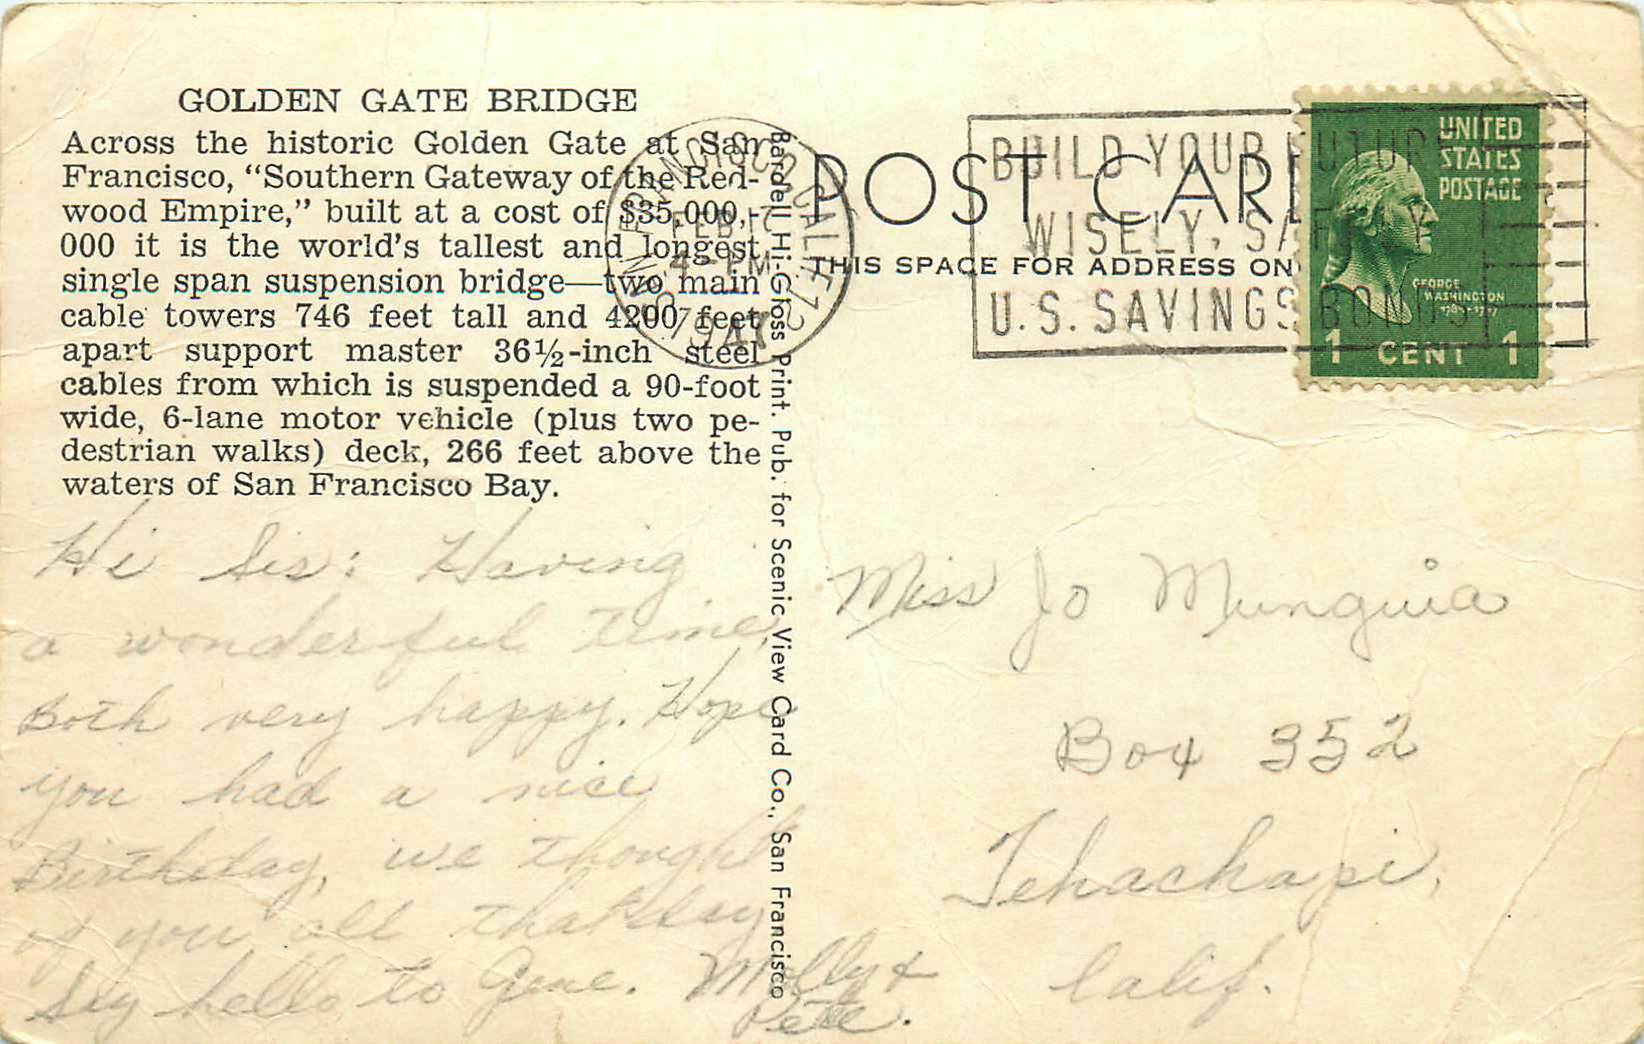 GOLDEN GATE BRIDGE
Across the historic Golden Gate at San
Francisco, “Southern Gateway of the Red-
wood Empire,” built at a cost of $35,000,-
000 it is the world's tallest and longest
single span suspension bridge—two main
cable towers 746 feet tall and 4200 feet
apart support master 36½-inch steel
cables from which is suspended a 90-foot
wide, 6-lane motor vehicle (plus two pe-
destrian walks) deck, 266 feet above the
waters of San Francisco Bay.
Hi Sis: Having
a wonderful time,
Both very happy. Hope
you had a nice
Birthday, we thought
of you all that day
Say hello to Gene. Molly &
Pete.
Bardell Hi-Gloss Print. Pub. for Scenic View Card Co., San Francisco
SAN FRANCISCO, CALIF.
FEB
4-PM
POST CAR
THIS SPACE FOR ADDRESS ON
BUILD YOUR FUTURE
WISELY, SAFELY
U.S. SAVINGS BONDS
UNITED
STATES
POSTAGE
GEORGE
WASHINGTON
1 CENT 1
Miss Jo Munguia
Box 352
Tehachapi,
Calif.